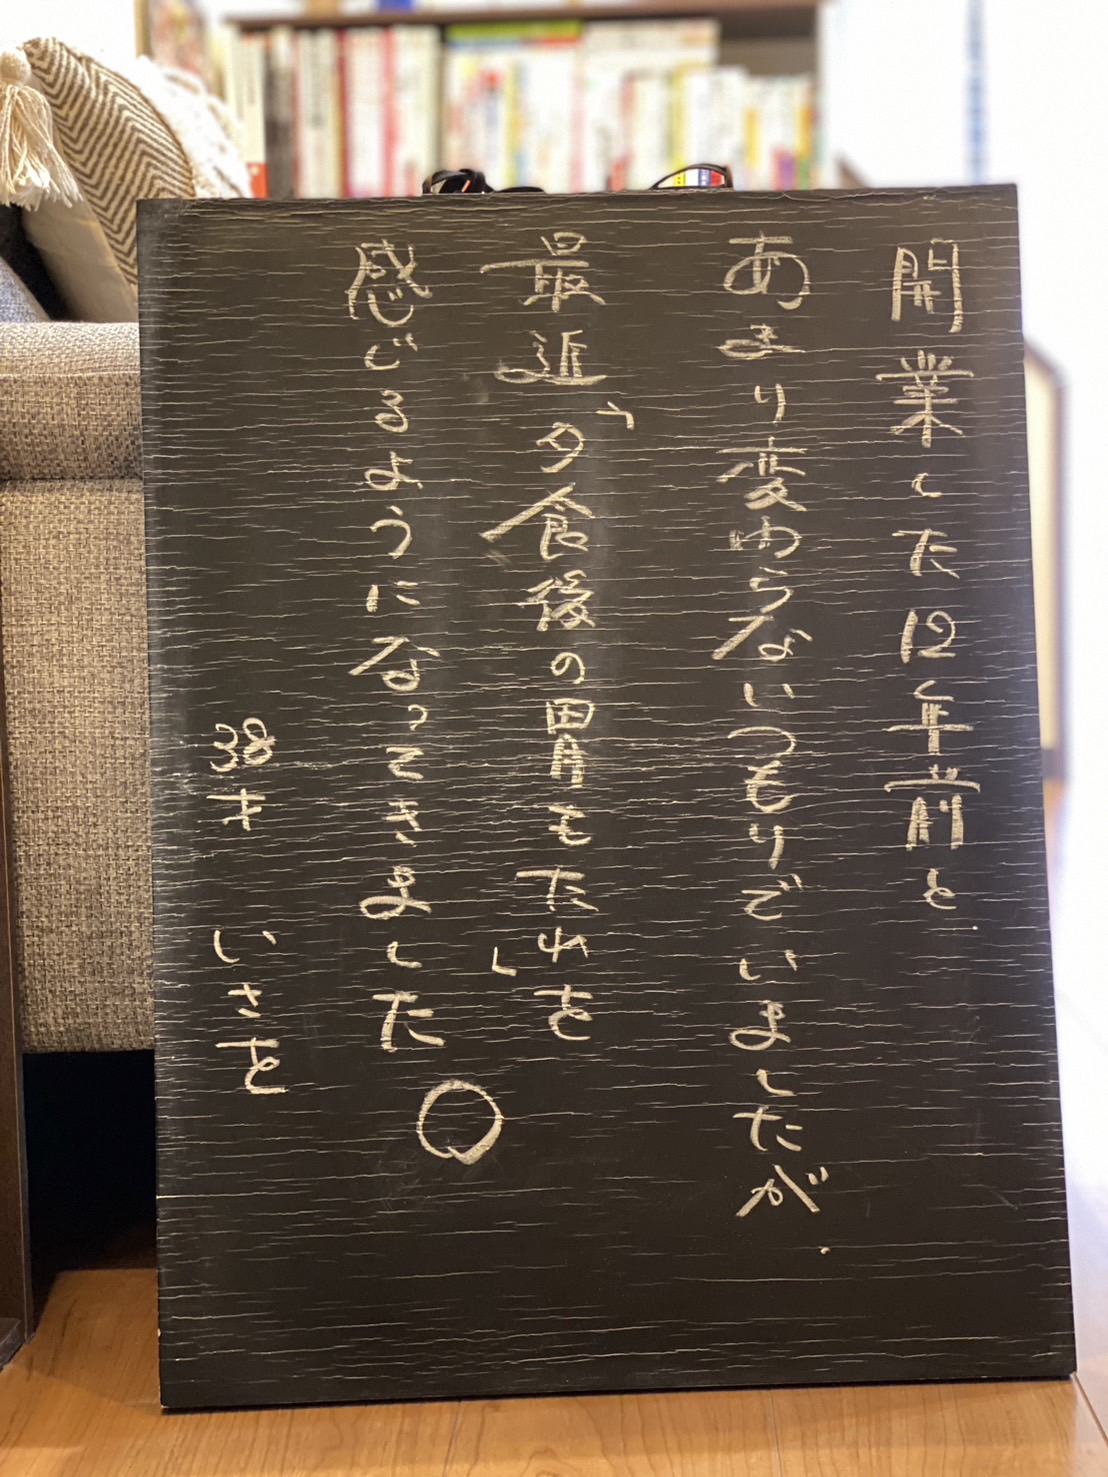 開業した12年前と、
あまり変わらないつもりでいましたが、
最近「夕食後の胃もたれ」を
感じるようになってきました。
38才 いさを